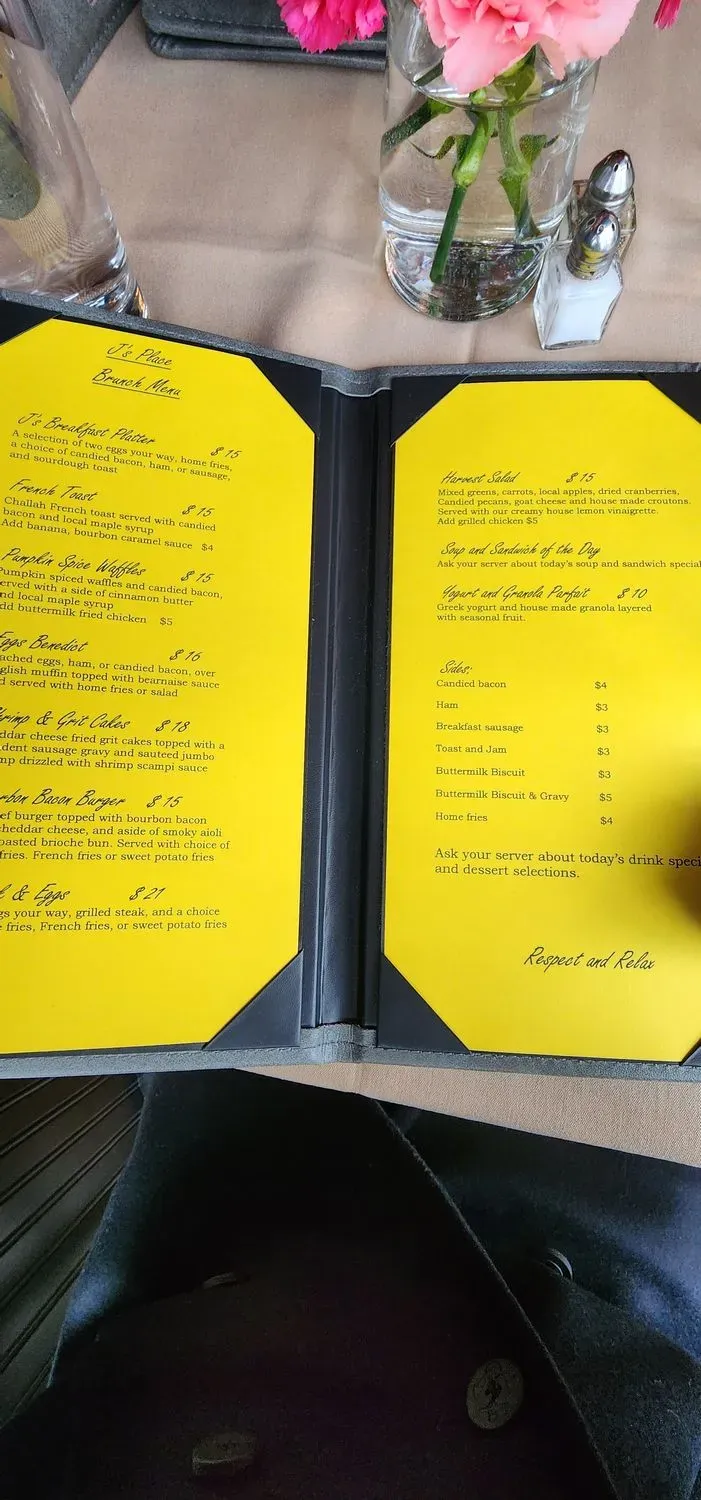 J's Place
Brunch Menu
J's Breakfast Platter $ 15
A selection of two eggs your way, home fries,
a choice of candied bacon, ham, or sausage,
and sourdough toast
French Toast $ 15
Challah French toast served with candied
bacon and local maple syrup
Add banana, bourbon caramel sauce $4
Pumpkin Spice Waffles $ 15
Pumpkin spiced waffles and candied bacon,
erved with a side of cinnamon butter
nd local maple syrup
dd buttermilk fried chicken $5
Eggs Benedict $ 16
ached eggs, ham, or candied bacon, over
glish muffin topped with bearnaise sauce
d served with home fries or salad
hrimp & Grit Cakes $ 18
ddar cheese fried grit cakes topped with a
dent sausage gravy and sauteed jumbo
mp drizzled with shrimp scampi sauce
rbon Bacon Burger $ 15
ef burger topped with bourbon bacon
cheddar cheese, and aside of smoky aioli
oasted brioche bun. Served with choice of
fries. French fries or sweet potato fries
& Eggs $ 21
gs your way, grilled steak, and a choice
e fries, French fries, or sweet potato fries
Harvest Salad $ 15
Mixed greens, carrots, local apples, dried cranberries,
Candied pecans, goat cheese and house made croutons.
Served with our creamy house lemon vinaigrette.
Add grilled chicken $5
Soup and Sandwich of the Day
Ask your server about today's soup and sandwich special
Yogurt and Granola Parfait $ 10
Greek yogurt and house made granola layered
with seasonal fruit.
Sides:
Candied bacon $4
Ham $3
Breakfast sausage $3
Toast and Jam $3
Buttermilk Biscuit $3
Buttermilk Biscuit & Gravy $5
Home fries $4
Ask your server about today's drink speci
and dessert selections.
Respect and Relax